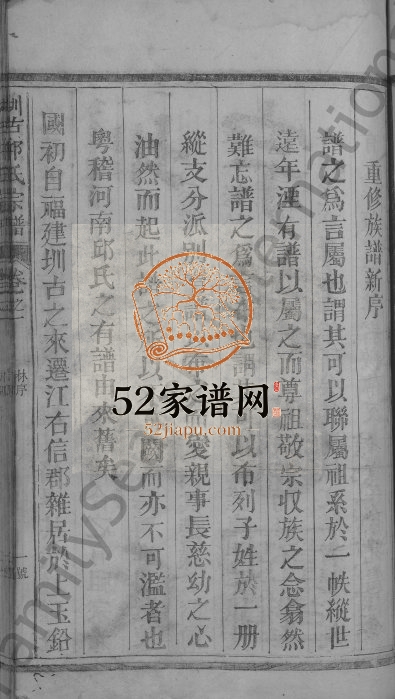 重修族譜新序
譜之為言屬也謂其可以聯屬祖系於一帙縱世
遠年湮有譜以屬之而尊祖敬宗収族之念翕然
難忘譜之為 以布列子姓於一册
縱支分派別 愛親事長慈幼之心
油然而起此 而亦不可濫者也
粵稽河南邱氏之有譜由來舊矣
國初自福建圳古之來遷江右信郡雜居於上玉鉛
圳古邱氏宗譜
卷之
林序
號
52家谱网
52jiapu.com
FamilySearch International